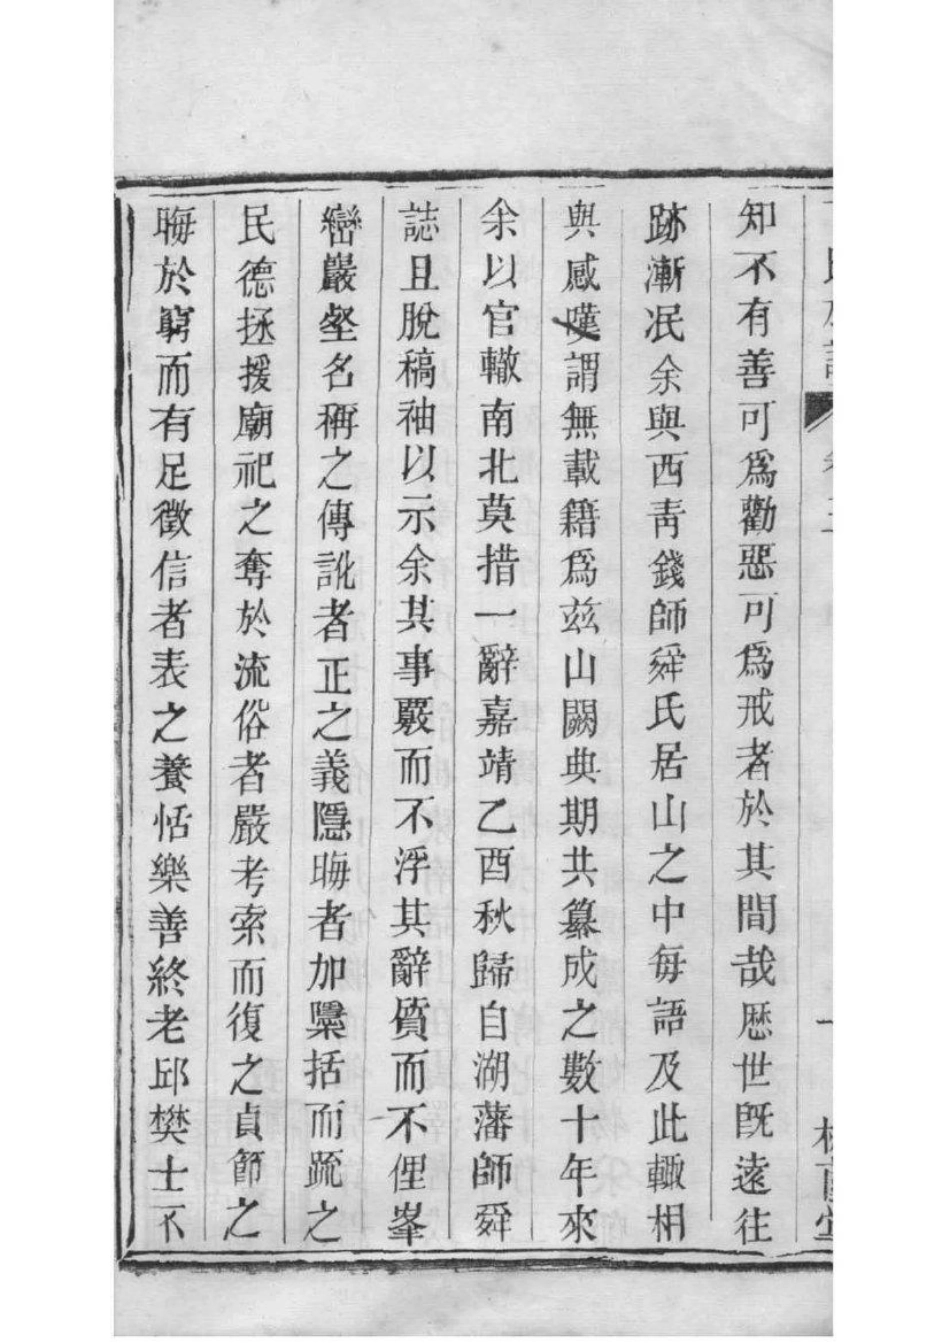 知不有善可爲勸惡可爲戒者於其間哉歷世旣遠往
跡漸泯余與西青錢師舜氏居山之中每語及此輙相
與感嘆謂無載籍爲兹山闕典期共纂成之數十年來
余以官轍南北莫措一辭嘉靖乙酉秋歸自湖藩師舜
誌且脫稿袖以示余其事覈而不浮其辭質而不俚峯
巒巖壑名稱之傳訛者正之義隱晦者加檃括而疏之
民德拯援廟祀之奪於流俗者嚴考索而復之貞節之
晦於窮而有足徵信者表之養恬樂善終老邱樊士不